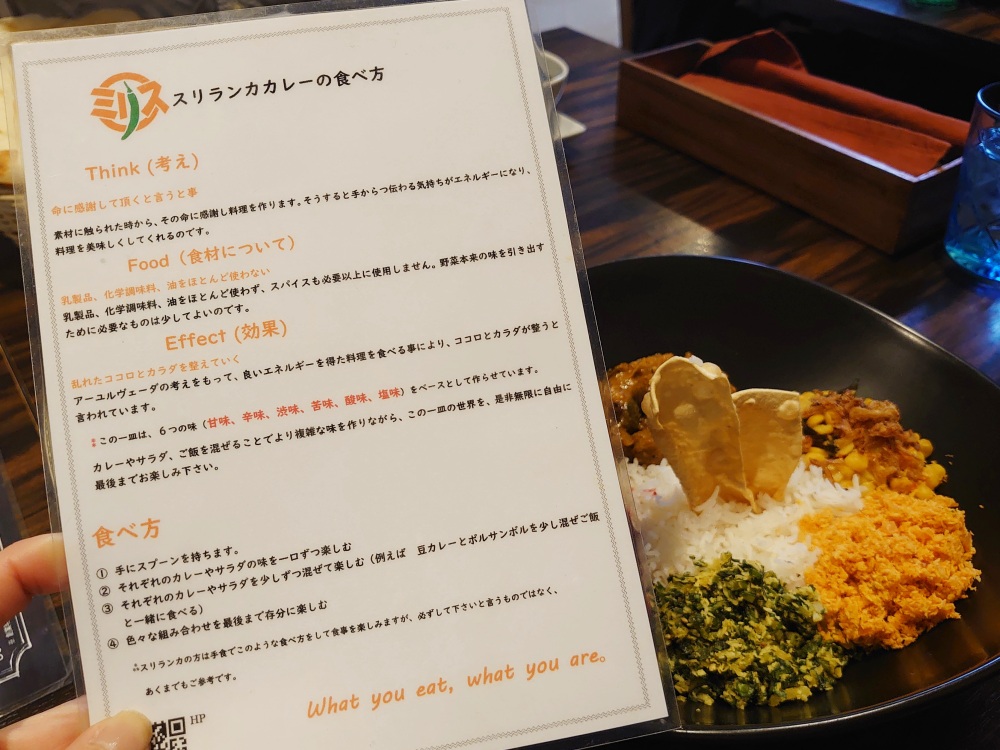 ミリス スリランカカレーの食べ方
Think (考え)
命に感謝して頂くと言うと事
素材に触られた時から、その命に感謝し料理を作ります。そうすると手からつ伝わる気持ちがエネルギーになり、
料理を美味しくしてくれるのです。
Food（食材について）
乳製品、化学調味料、油をほとんど使わない
乳製品、化学調味料、油をほとんど使わず、スパイスも必要以上に使用しません。野菜本来の味を引き出す
ために必要なものは少してよいのです。
Effect (効果)
乱れたココロとカラダを整えていく
アーユルヴェーダの考えをもって、良いエネルギーを得た料理を食べる事により、ココロとカラダが整うと
言われています。
※この一皿は、６つの味（甘味、辛味、渋味、苦味、酸味、塩味）をベースとして作らせています。
カレーやサラダ、ご飯を混ぜることでより複雑な味を作りながら、この一皿の世界を、是非無限に自由に
最後までお楽しみ下さい。
食べ方
① 手にスプーンを持ちます。
② それぞれのカレーやサラダの味を一口ずつ楽しむ
③ それぞれのカレーやサラダを少しずつ混ぜて楽しむ（例えば　豆カレーとポルサンボルを少し混ぜご飯
と一緒に食べる）
④ 色々な組み合わせを最後まで存分に楽しむ
※スリランカの方は手食でこのような食べ方をして食事を楽しみますが、必ずして下さいと言うものではなく、
あくまでもご参考です。
What you eat, what you are。
HP